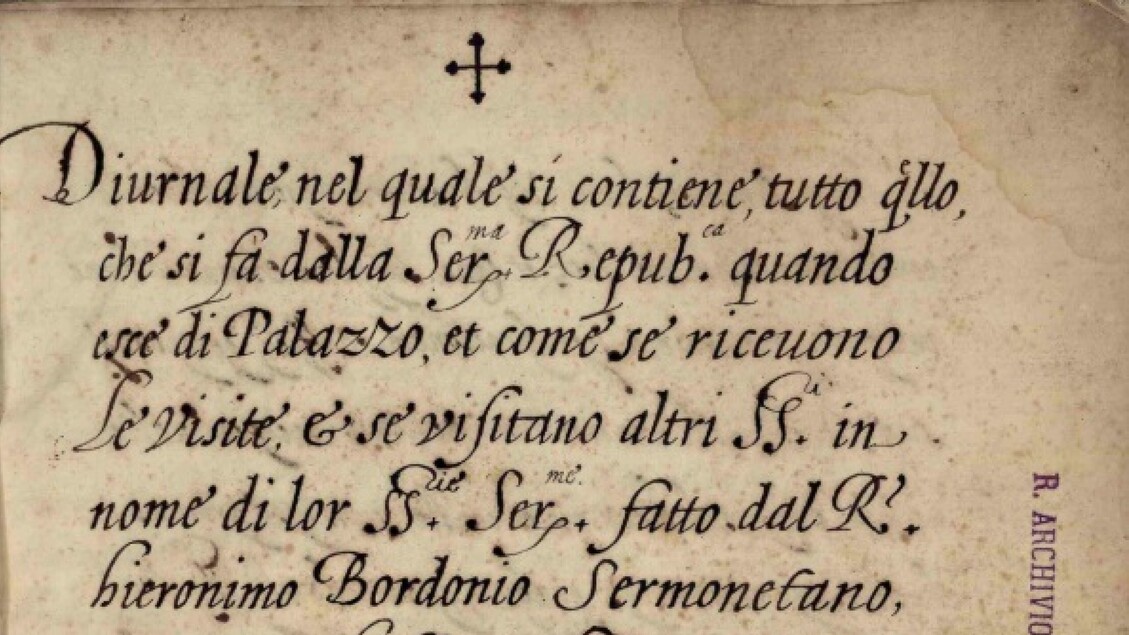 Diurnale, nel quale si contiene, tutto q̃llo,
che si fa dalla Ser.ma Repub.ca quando
esce di Palazzo, et come se riceuono
Le visite, & se visitano altri SS.ri in
nome di lor SS.rie Ser.me fatto dal R.
hieronimo Bordonio Sermonetano,
R. ARCHIVIO